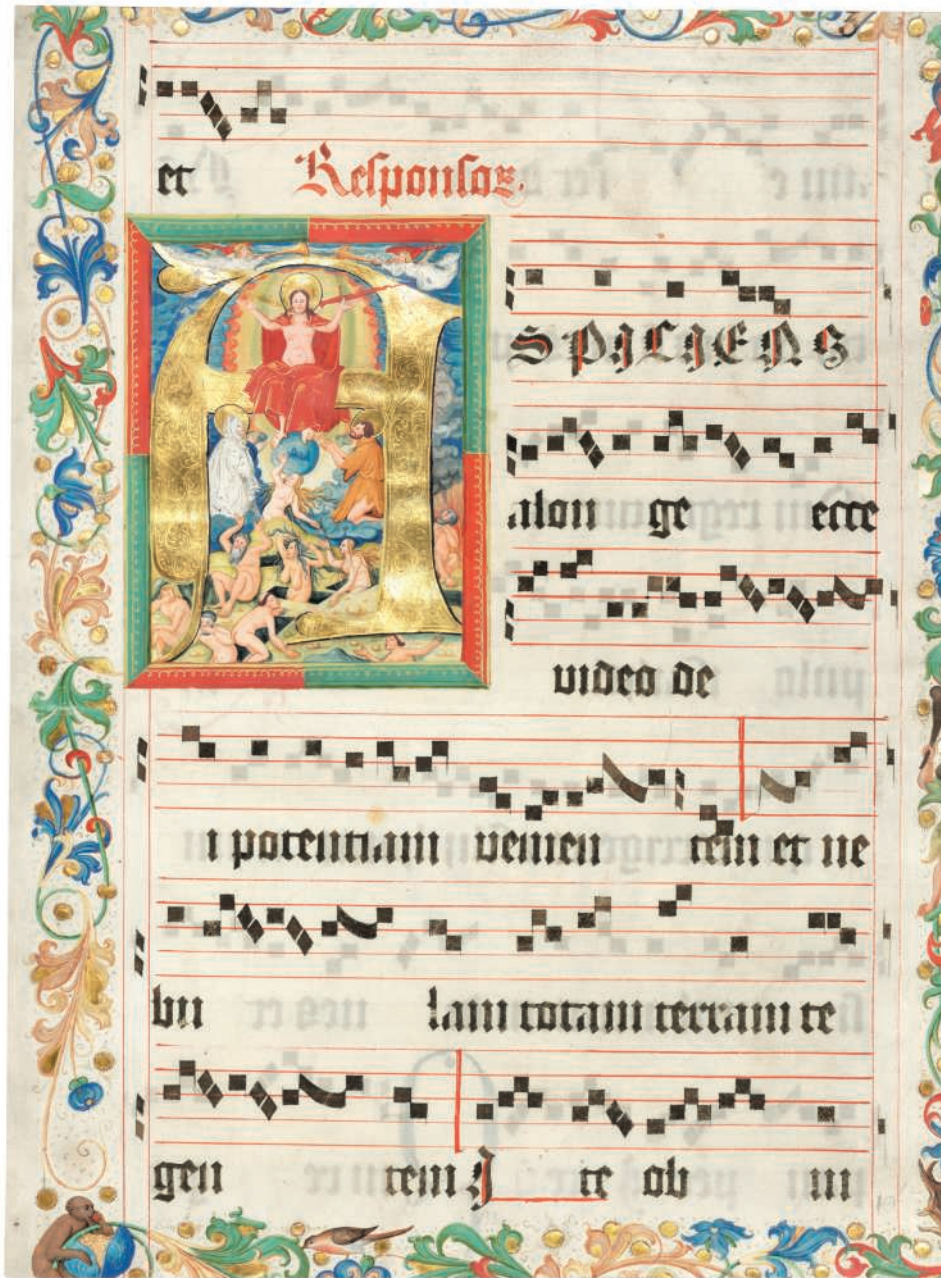 et Responsoꝝ.
ASPICIENS
alon ge ecce
video de
i potentiam venien tem et ne
bu lam totam terram te
gen tem I te ob ui